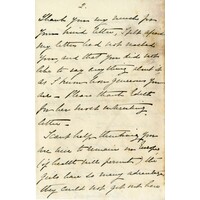 2.
Thank you very much for
your kind letter, I felt afraid
my letter had not reached
you and that you did not
like to say anything about it
as I know how generous you
are – Please thank Edith
for her most interesting
letter –
I can't help thinking you
are wise to remain in
if health will permit, the
girls have so many advantages
they could not get out here